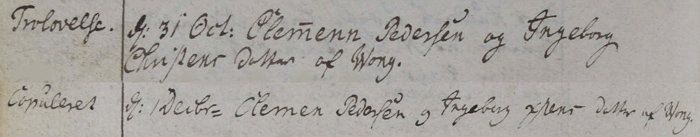 Trolovelse. d: 31 Oct: Clem̄enn Pedersen og Ingeborg
Christens datter af Wong.
Copuleret d: 1 Decbr= Clemen Pedersen og Ingeborg xstens datter af Wong.